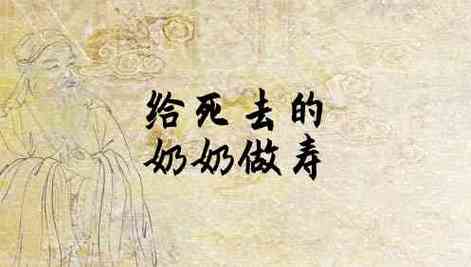 给死去的
奶奶做寿